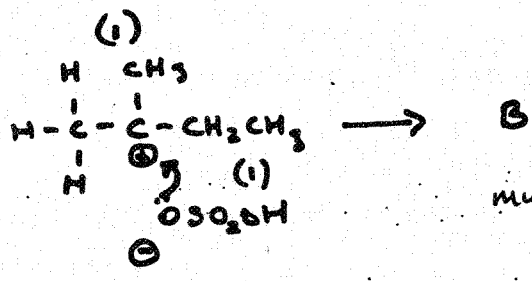 (1)
H CH3
H-C-C-CH2CH3 → B
⊕
H (1)
:OSO2OH
mu
⊖